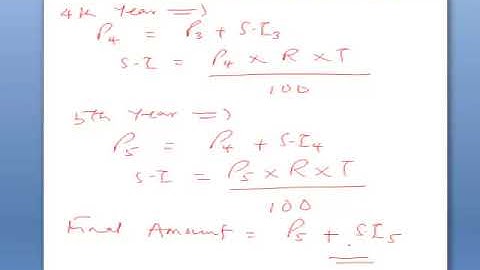 4th Year =>
P4 = P3 + S.I3
S.I = P4 × R × T
100
5th Year =>
P5 = P4 + S.I4
S.I = P5 × R × T
100
Final Amount = P5 + S.I5